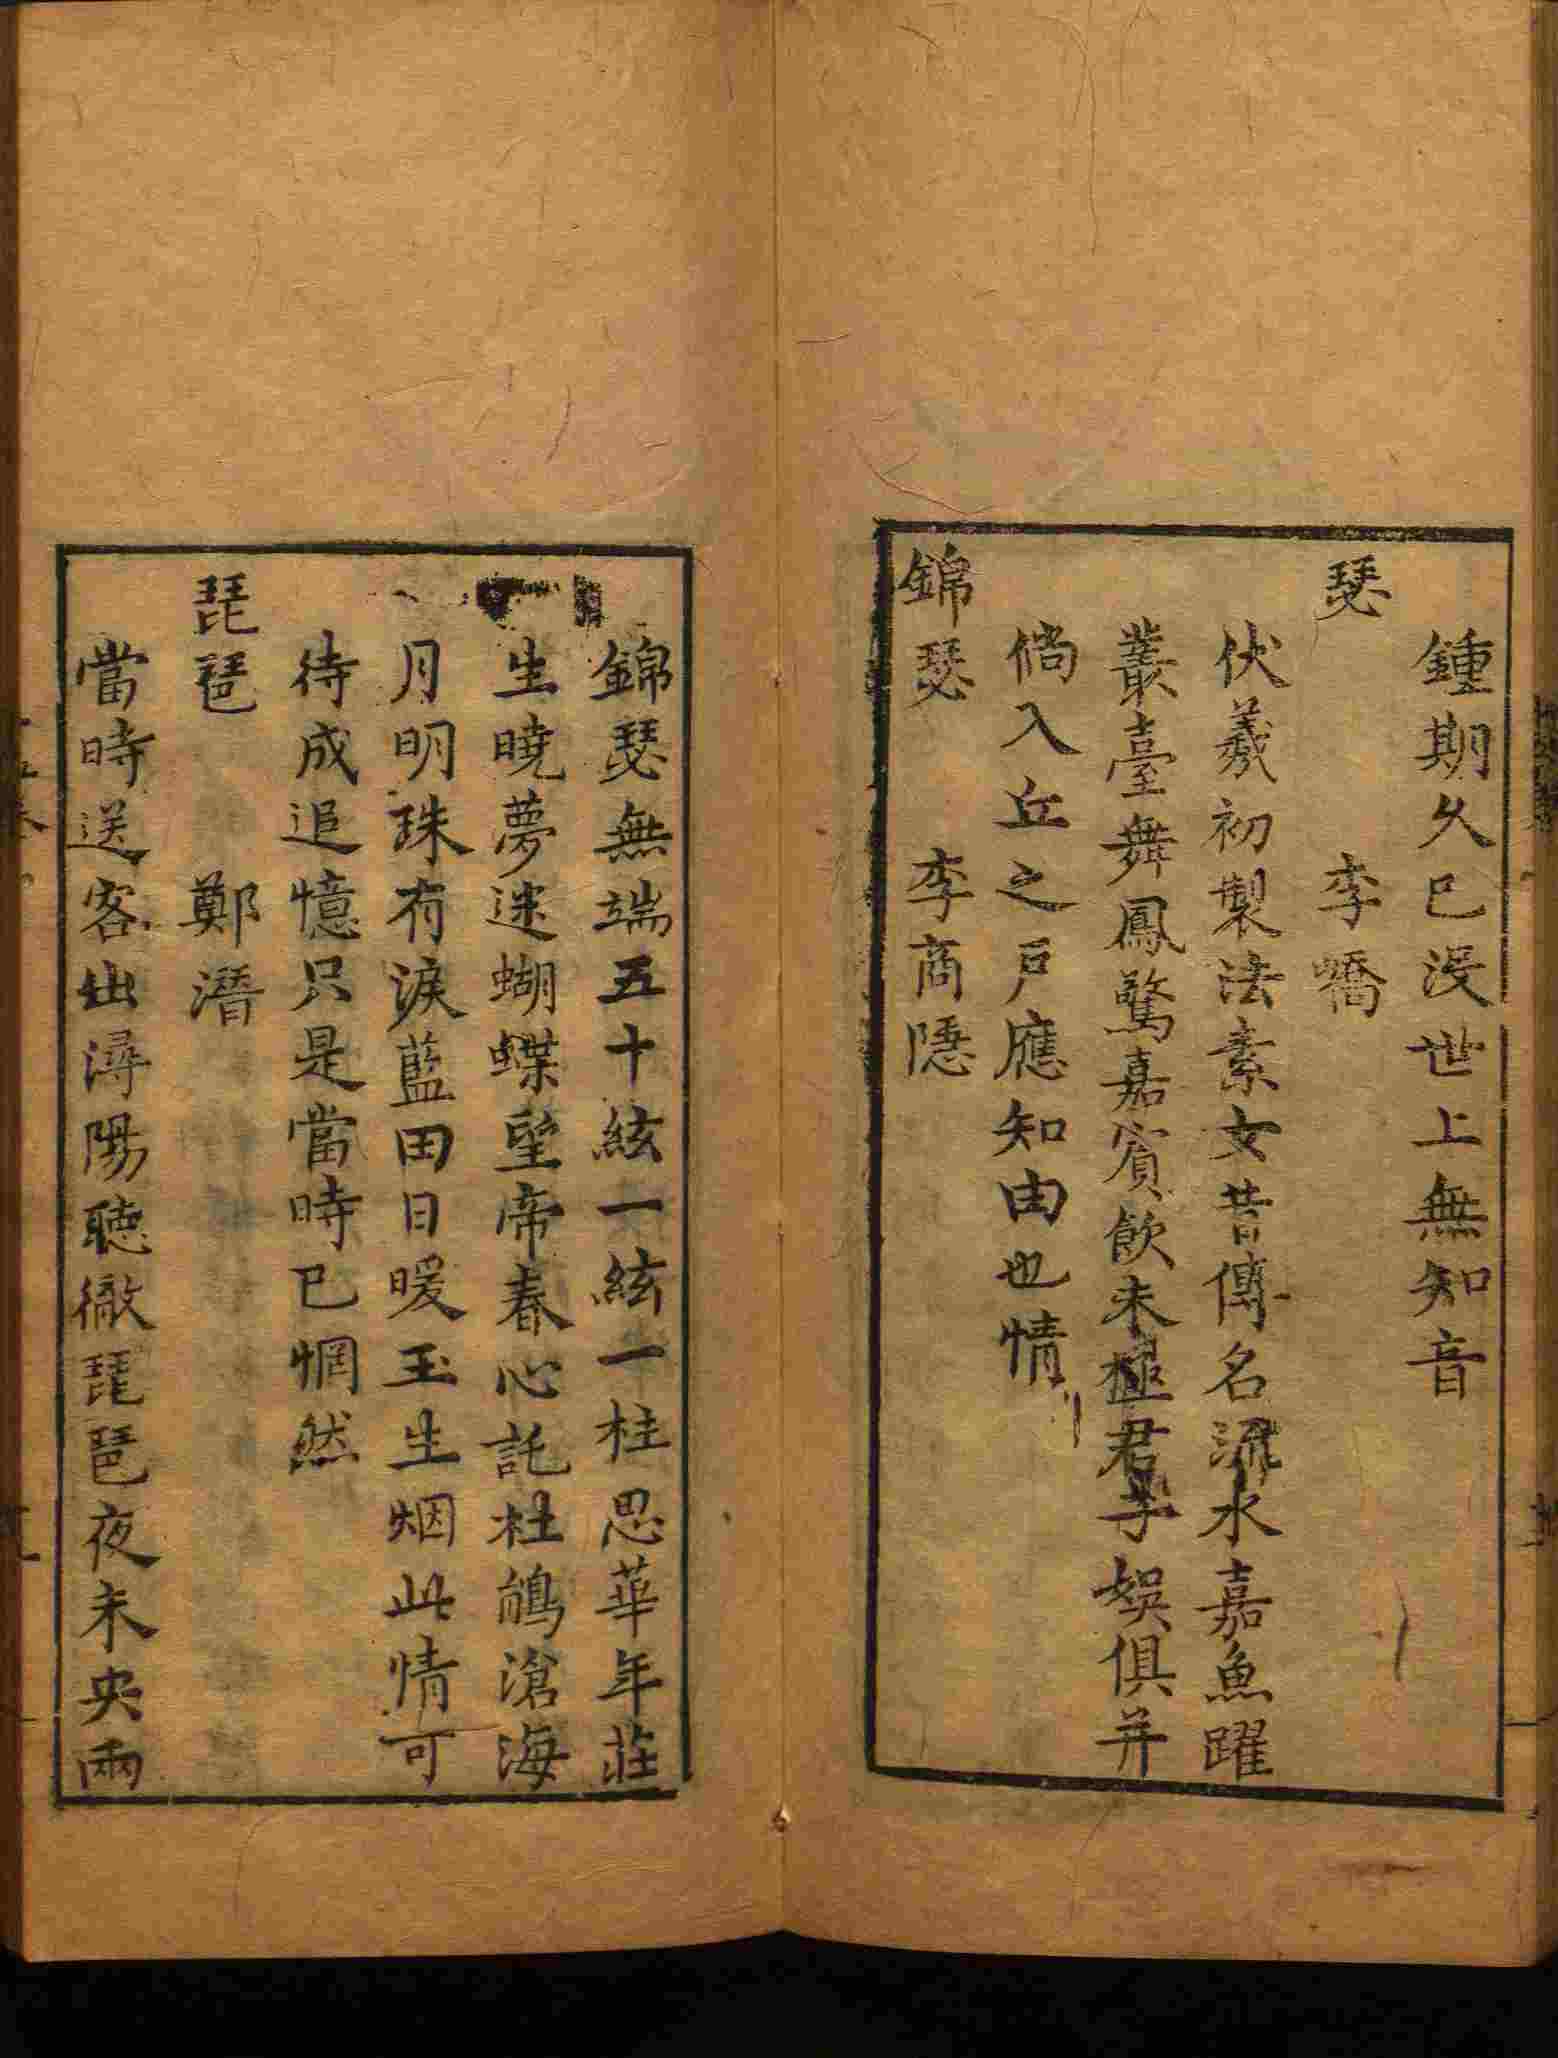 鍾期久已沒世上無知音
瑟 李嶠
伏羲初製法素女昔傳名流水嘉魚躍
叢臺舞鳳驚嘉賓飲未極君子娛俱并
倘入丘之戶應知由也情
錦瑟 李商隱
錦瑟無端五十絃一絃一柱思華年莊
生曉夢迷蝴蝶望帝春心託杜鵑滄海
月明珠有淚藍田日暖玉生烟此情可
待成追憶只是當時已惘然
琵琶 鄭潛
當時送客出潯陽聽徹琵琶夜未央兩